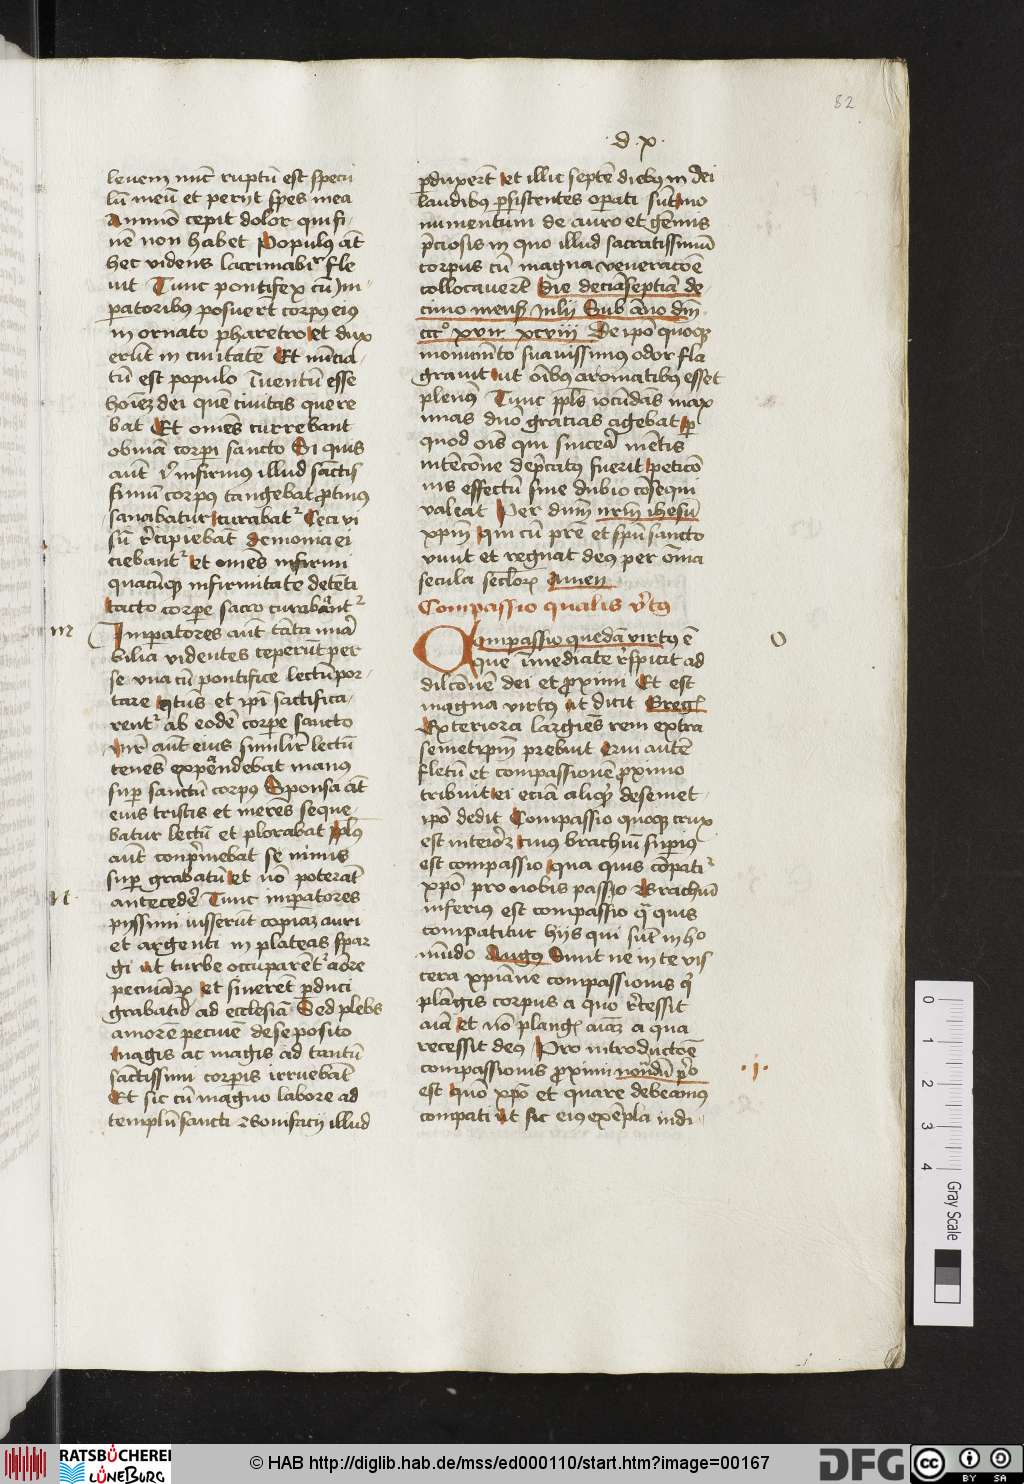 82
d x
leuem nūc ruptū est specu
lū meū et periit spes mea
Ammō cepit dolor qui fi
nē non habet Populus āt
hec videns lacrimabiľ fle
uit Tunc pontifex cū im
peratoribus posuerūt corpus eius
in ornato pharetro et dux
erūt in ciuitatē Et nūcia
tū est populo Inuentū esse
hoīez dei quē ciuitas quere
bat Et omēs currebant
obuiā corpori sancto Si quis
aūt infirmus illud sāctis
simū corpus tangebat protinus
sanabatur curabāt² Ceci vi
sū recipiebāt demonia ei
ciebant² et omēs infirmi
quacūque infirmitate detēti
tacto corpore sacro curabant²
m
Imperatores aūt tāta mira
bilia videntes ceperūt per
se vna cū pontifice lectū por
tare quatn̄s et ipī sactifica
rent² ab eodē corpore sancto
mr̄ aūt eius similiter lectū
tenēs expandebat manus
super sanctū corpus Sponsa āt
eius tristis et merēs seque
batur lectū et plorabat pplūs
aūt conprimebat se nimis
super grabatū et nō poterāt
n
antecedere Tunc imperatores
pijssimi iusserūt copiaz auri
et argenti in plateas spar
gi ut turbe occuparēt² amore
pecuniarum et sinerēt perduci
grabatū ad ecclesiā Sed plebs
amorē pecunie deseposito
magis ac magis ad tantū
sāctissimi corporis irruebāt
Et sic cū magno labore ad
templū sancti Bonifacij illud
perduxerūt et illic septē diebus in dei
laudibus persistentes opati sūt mo
numentum de auro et gēmis
preciosis in quo illud sacratissimū
corpus cū magna veneracōe
collocauerūt die decīaseptīa de
cimo mensis iulij Sub āno dni
cccº xvii xcviii De ipō quoque
monumēto suauissimus odor fla
grauit ut oībus aromatibus esset
plenus Tunc ppls iocūdās max
imas dnō gracias agebat per
quod oīs qui sincera mētis
intēcōne deprecatus fuerit peticō
nis effectū sine dubio cōsequi
valeat Per dnm̄ nrm̄ ihesū
xpm̄ qui cū pr̄e et spū sancto
viuit et regnat deus per oīa
secula seclorum Amen
Compassio qualis virtus
O
Compassio quedā virtus ē
que immediate respicit ad
dilcōnē dei et proximi Et est
magna virtus ut dicit Greg
Exteriora largiens rem extra
semetipm̄ prebuit Qui autē
fletū et compassionē proximo
tribuit ei eciā aliquid desemet
ipō dedit Compassio quoque crux
est interior cuius brachiū superius
est compassio qua quis cōpati²
xpō pro nobis passio Brachiū
inferius est compassio qua quis
compatitur hijs qui sūt in hoc
mūdo Augus Sunt ne in te vis
cera xpiāne compassionis qui
plangis corpus a quo recessit
aīa et nō plangis aīaz a qua
recessit deus Pro introductōe
j.
compassionis proximi
est quō xpō et quare debeamus
compati ut sic eius exepla indi
0
1
2
3
4
Gray Scale
RATSBÜCHEREI
LÜNEBURG
© HAB http://diglib.hab.de/mss/ed000110/start.htm?image=00167
DFG
cc
BY SA